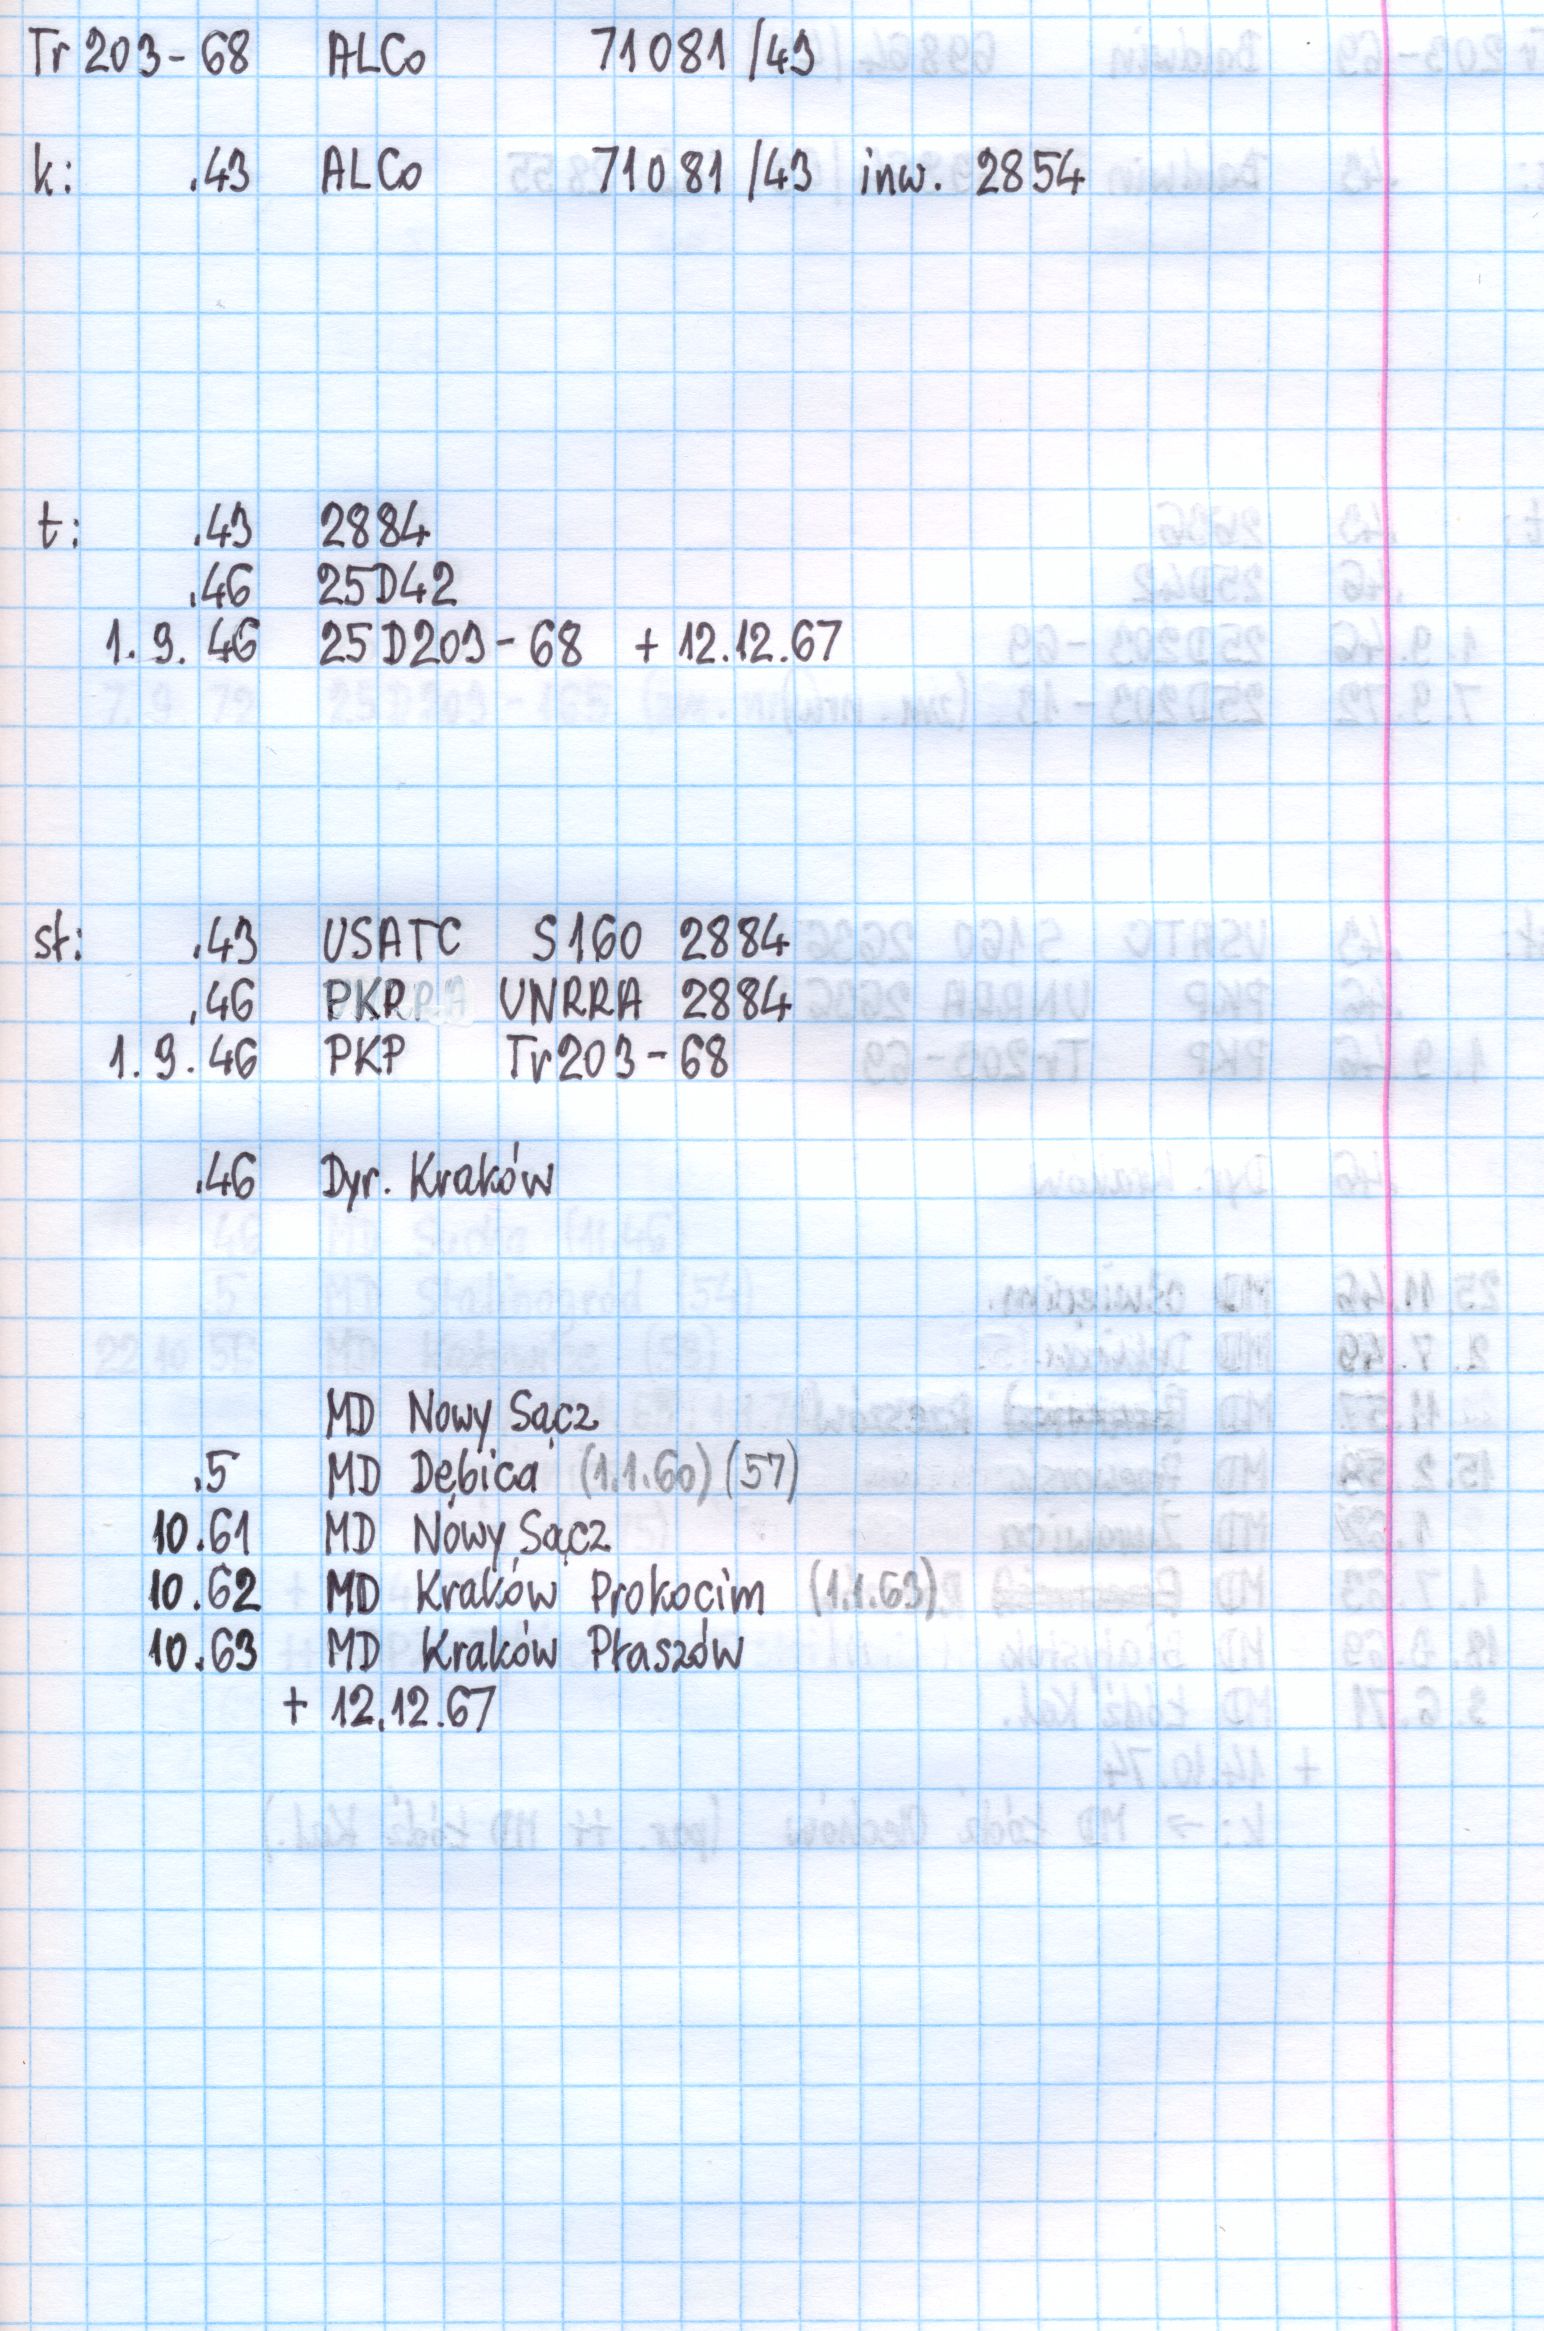 Tr 203-68 ALCo 71081/43
k: .43 ALCo 71081/43 inw. 2854
t: .43 2884
.46 25D42
1.9.46 25D203-68 + 12.12.67
st: .43 USATC S160 2884
.46 PKP UNRRA 2884
1.9.46 PKP Tr203-68
.46 Dyr. Kraków
MD Nowy Sącz
.5 MD Dębica (1.1.60) (57)
10.61 MD Nowy Sącz
10.62 MD Kraków Prokocim (1.1.63)
10.63 MD Kraków Płaszów
+ 12.12.67